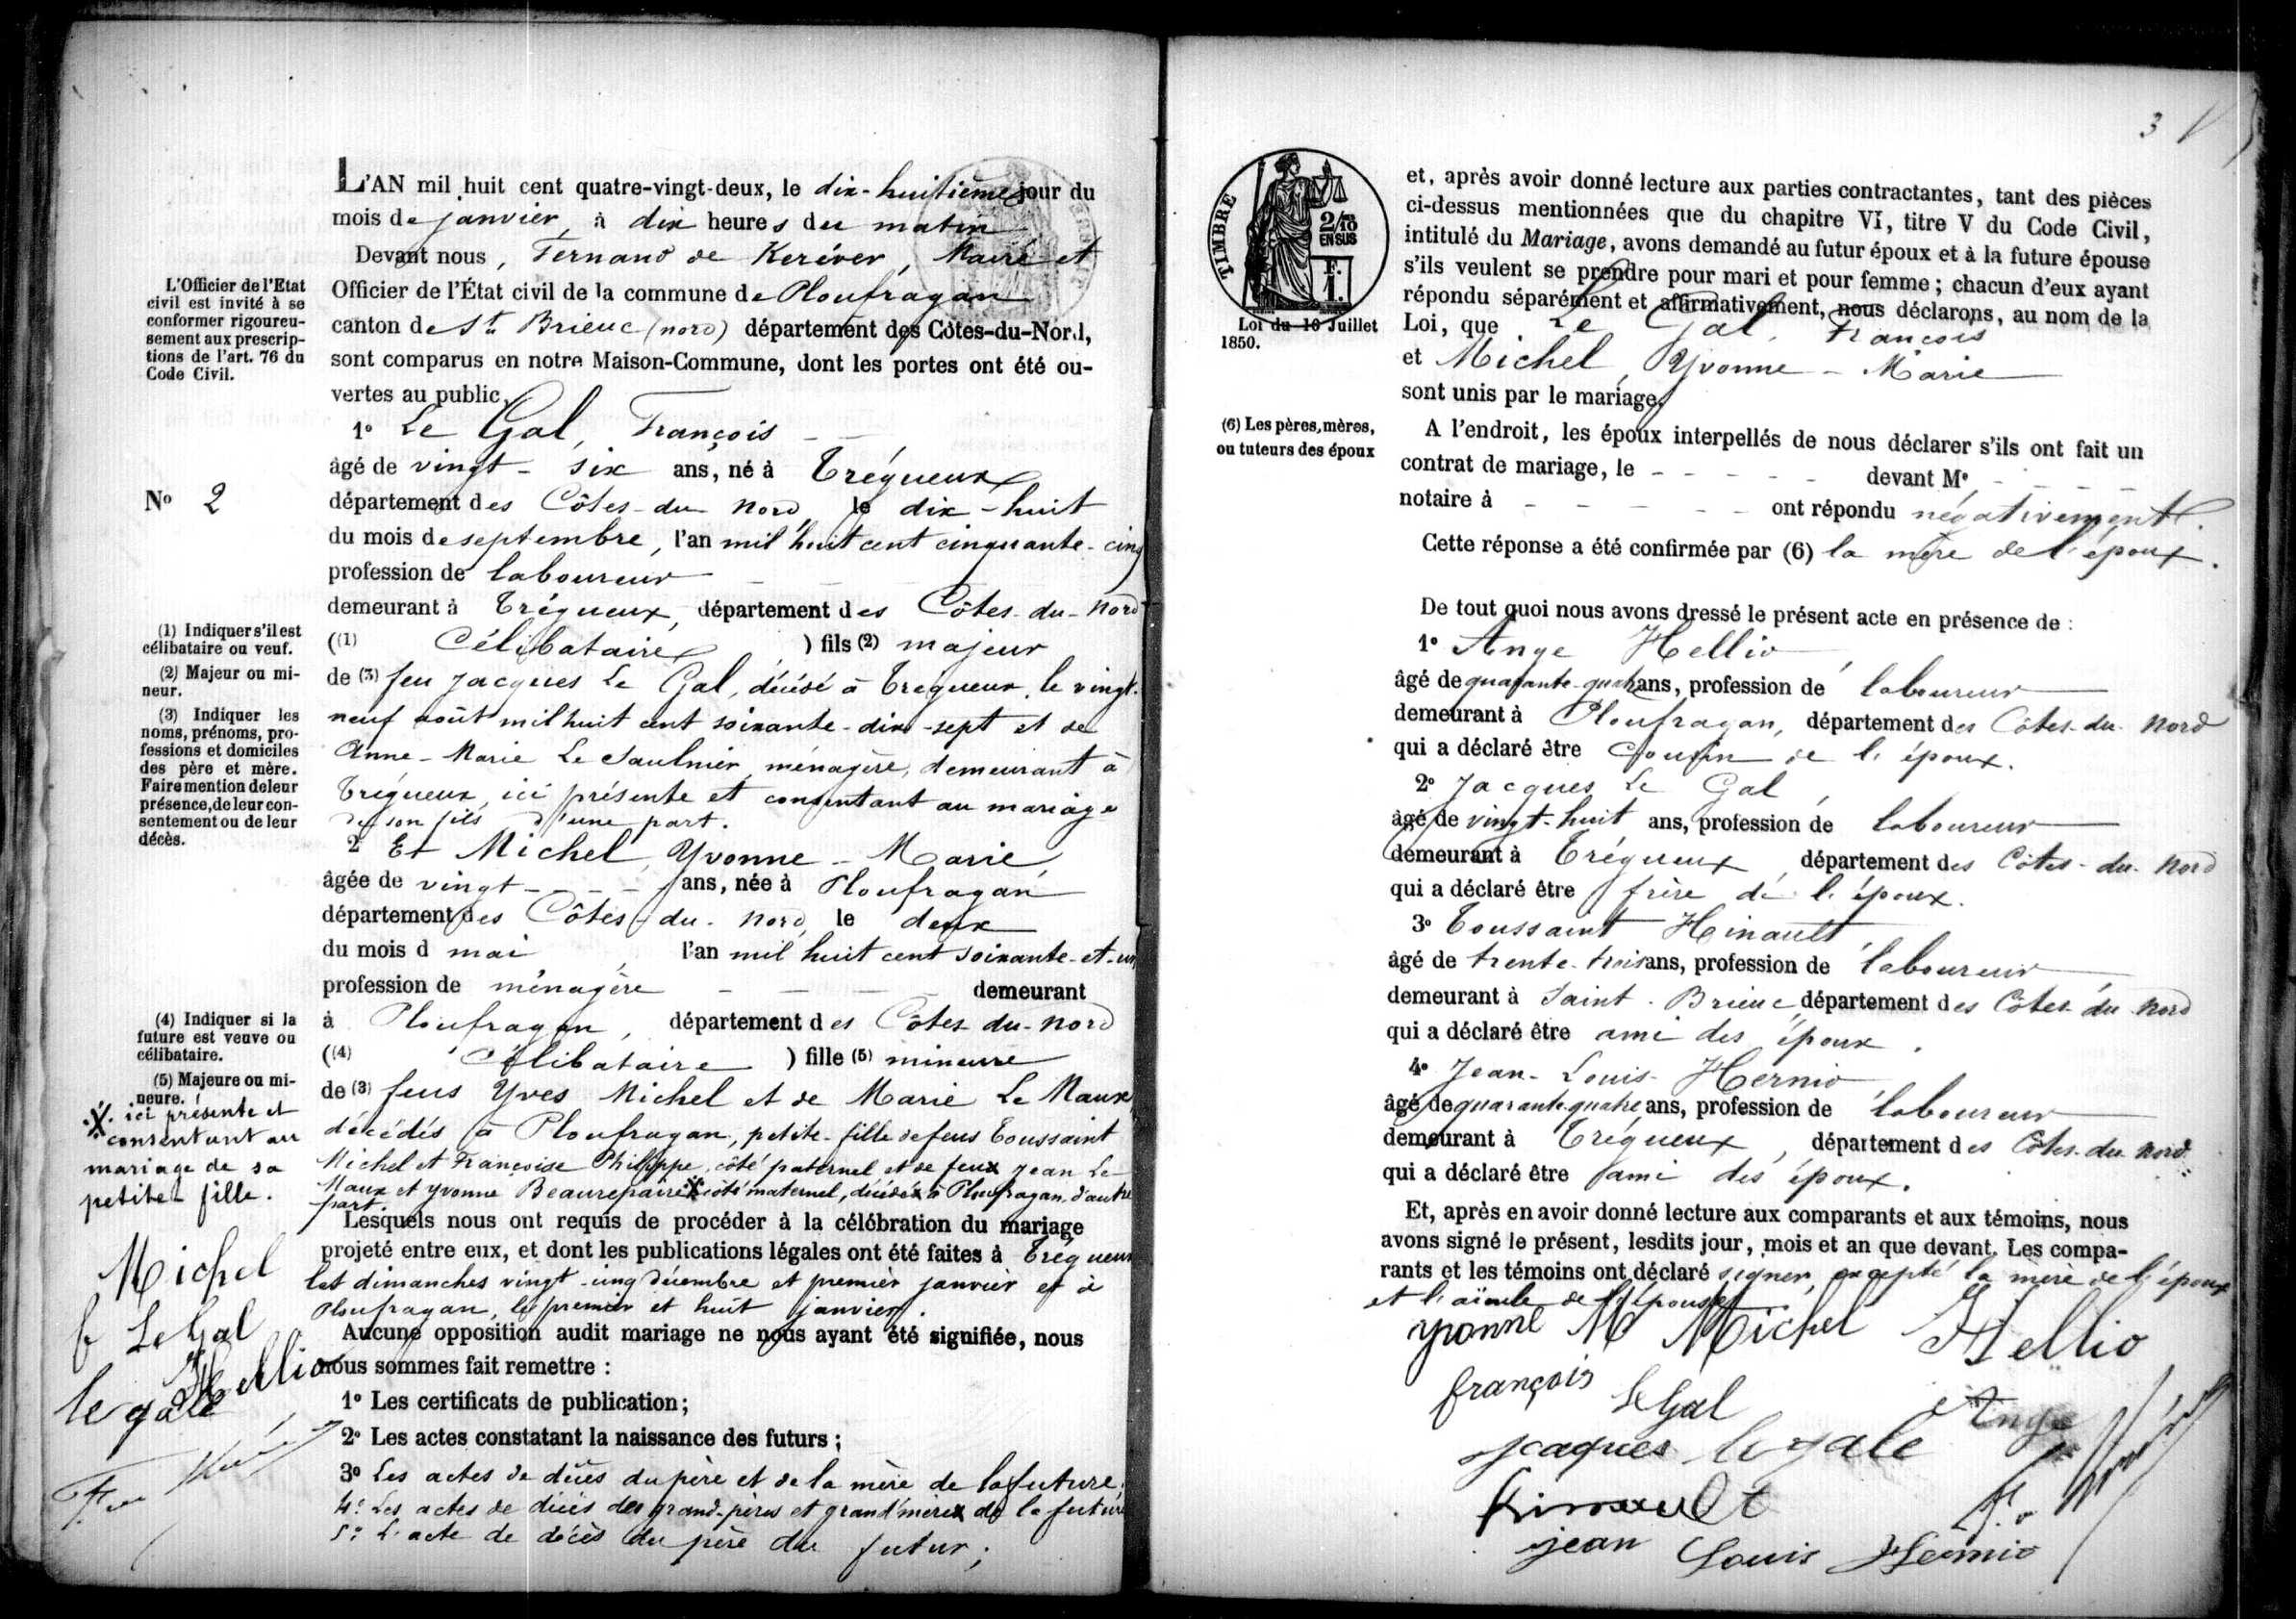 L'AN mil huit cent quatre-vingt-deux, le dix-huitième jour du
mois de janvier, à dix heures du matin
Devant nous, Fernand de Keréver, Maire et
Officier de l'État civil de la commune de Ploufragan
canton de St Brieuc (nord) département des Côtes-du-Nord,
sont comparus en notre Maison-Commune, dont les portes ont été ou-
vertes au public,
L'Officier de l'Etat
civil est invité à se
conformer rigoureu-
sement aux prescrip-
tions de l'art. 76 du
Code Civil.
1° Le Gal, François
âgé de vingt-six ans, né à Trégueux
No 2
département des Côtes-du-Nord, le dix-huit
du mois de septembre, l'an mil huit cent cinquante-cinq
profession de laboureur
demeurant à Trégueux, département des Côtes-du-Nord
((1) Célibataire ) fils (2) majeur
de (3) feu Jacques Le Gal, décédé à Tregueux, le vingt-
neuf août mil huit cent soixante-dix-sept et de
Anne-Marie Le Saulnier, ménagère, demeurant à
Trégueux, ici présente et consentant au mariage
de son fils d'une part.
(1) Indiquer s'il est
célibataire ou veuf.
(2) Majeur ou mi-
neur.
(3) Indiquer les
noms, prénoms, pro-
fessions et domiciles
des père et mère.
Faire mention de leur
présence, de leur con-
sentement ou de leur
décès.
2 Et Michel, Yvonne-Marie
âgée de vingt - - - - ans, née à Ploufragan
département des Côtes-du-Nord, le deux
du mois d mai, l'an mil huit cent soixante-et-un
profession de ménagère - - - - demeurant
à Ploufragan, département des Côtes-du-Nord
((4) Célibataire ) fille (5) mineure
de (3) feus Yves Michel et de Marie Le Maux
décédés à Ploufragan, petite-fille de feus Toussaint
Michel et Françoise Philippe, côté paternel et de feux Jean Le
Maux et Yvonne Beaurepaire X côté maternel, décédés à Ploufragan, d'autre
part.
(4) Indiquer si la
future est veuve ou
célibataire.
(5) Majeure ou mi-
neure.
X ici présente et
consentant au
mariage de sa
petite fille.
Michel
f Le Gal
Hellio
le gale
Lesquels nous ont requis de procéder à la célébration du mariage
projeté entre eux, et dont les publications légales ont été faites à Trégueux
les dimanches vingt-cinq décembre et premier janvier et à
Ploufragan, les premier et huit janvier.
Aucune opposition audit mariage ne nous ayant été signifiée, nous
nous sommes fait remettre :
1° Les certificats de publication;
2° Les actes constatant la naissance des futurs;
3° Les actes de décès du père et de la mère de la future;
4° Les actes de décès des grand-pères et grand'mères de la future
5° L'acte de décès du père du futur;
3
TIMBRE
2/10
EN SUS
F.
1.
Loi du 10 Juillet
1850.
et, après avoir donné lecture aux parties contractantes, tant des pièces
ci-dessus mentionnées que du chapitre VI, titre V du Code Civil,
intitulé du Mariage, avons demandé au futur époux et à la future épouse
s'ils veulent se prendre pour mari et pour femme; chacun d'eux ayant
répondu séparément et affirmativement, nous déclarons, au nom de la
Loi, que Le Gal, François
et Michel, Yvonne-Marie
sont unis par le mariage.
(6) Les pères, mères,
ou tuteurs des époux
A l'endroit, les époux interpellés de nous déclarer s'ils ont fait un
contrat de mariage, le - - - - - devant Me - - - -
notaire à - - - - - ont répondu négativement.
Cette réponse a été confirmée par (6) la mère de l'époux.
De tout quoi nous avons dressé le présent acte en présence de :
1° Ange Hellio,
âgé de quarante-quatre ans, profession de laboureur
demeurant à Ploufragan, département des Côtes-du-Nord
qui a déclaré être cousin de l'époux.
2° Jacques Le Gal,
âgé de vingt-huit ans, profession de laboureur
demeurant à Trégueux, département des Côtes-du-Nord
qui a déclaré être frère de l'époux.
3° Toussaint Hinault,
âgé de trente-trois ans, profession de laboureur
demeurant à Saint-Brieuc, département des Côtes-du-Nord
qui a déclaré être ami des époux.
4° Jean-Louis Hernio,
âgé de quarante-quatre ans, profession de laboureur
demeurant à Trégueux, département des Côtes-du-Nord
qui a déclaré être ami des époux.
Et, après en avoir donné lecture aux comparants et aux témoins, nous
avons signé le présent, lesdits jour, mois et an que devant. Les compa-
rants et les témoins ont déclaré signer, excepté la mère de l'époux
et l'aïeule de l'épouse.
yvonne M Michel Hellio
françois Le Gal Ange
jacques le gale
hinault
jean Louis Hernio